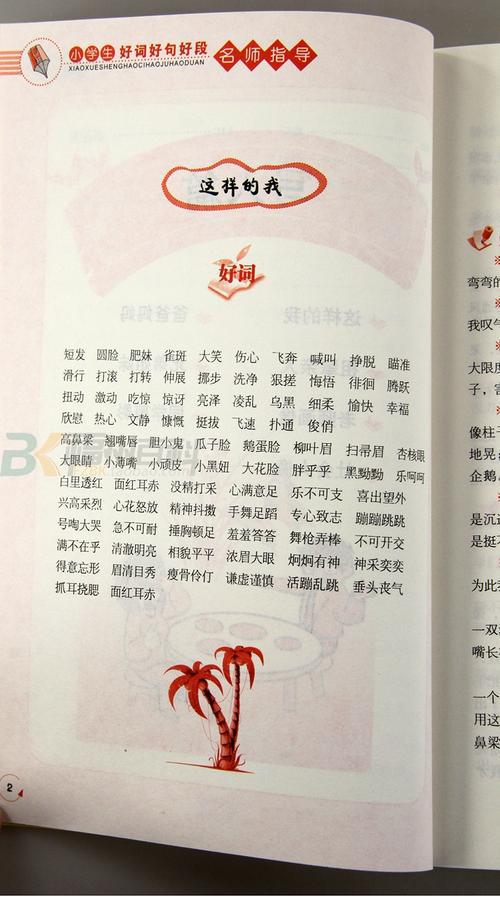 小学生好词好句好段 名师指导
XIAOXUESHENGHAOCIHAOJUHAODUAN
这样的我
好词
短发 圆脸 肥妹 雀斑 大笑 伤心 飞奔 喊叫 挣脱 瞄准
滑行 打滚 打转 伸展 挪步 洗净 狠搓 悔悟 徘徊 腾跃
扭动 激动 吃惊 惊讶 亮泽 凌乱 乌黑 细柔 愉快 幸福
欣慰 热心 文静 慷慨 挺拔 飞速 扑通 俊俏
高鼻梁 翘嘴唇 胆小鬼 瓜子脸 鹅蛋脸 柳叶眉 扫帚眉 杏核眼
大眼睛 小薄嘴 小顽皮 小黑妞 大花脸 胖乎乎 黑黝黝 乐呵呵
白里透红 面红耳赤 没精打采 心满意足 乐不可支 喜出望外
兴高采烈 心花怒放 精神抖擞 手舞足蹈 专心致志 蹦蹦跳跳
号啕大哭 急不可耐 捶胸顿足 羞羞答答 舞枪弄棒 不可开交
满不在乎 清澈明亮 相貌平平 浓眉大眼 炯炯有神 神采奕奕
得意忘形 眉清目秀 瘦骨伶仃 谦虚谨慎 活蹦乱跳 垂头丧气
抓耳挠腮 面红耳赤
2
弯弯的
我叹气
大限度
像柱子
地晃
企鹅
是沉
是挺不
为此
一双
嘴长
一个
用这
鼻梁